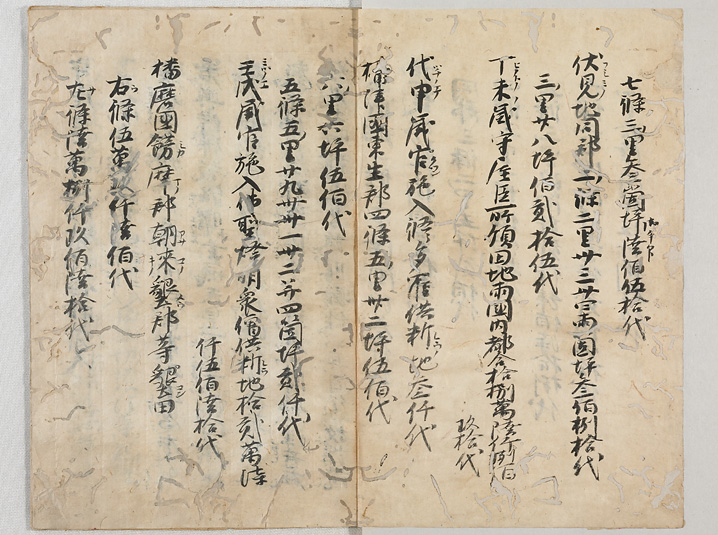 七條三里叁箇坪陸佰伍拾代
伏見地同郡二條二里卅三廿四兩箇坪叁佰捌拾代
三里廿八坪佰貳拾伍代
丁未歳守屋臣所領田地兩國内都合拾捌萬陸仟捌佰
玖拾代
代申歳官施入 料地叁仟代
國東生郡四條五里廿二坪伍佰代
八里六坪伍佰代
五條五里廿九卅卅一卅二并四箇坪貳仟代
壬戌歳官施入佛聖燈明衆僧供料地拾貳萬漆
仟伍佰陸拾代
播磨國餝磨郡朝來墾郡等墾田
右條伍萬玖仟陸佰代
左條陸萬捌仟玖佰陸拾代